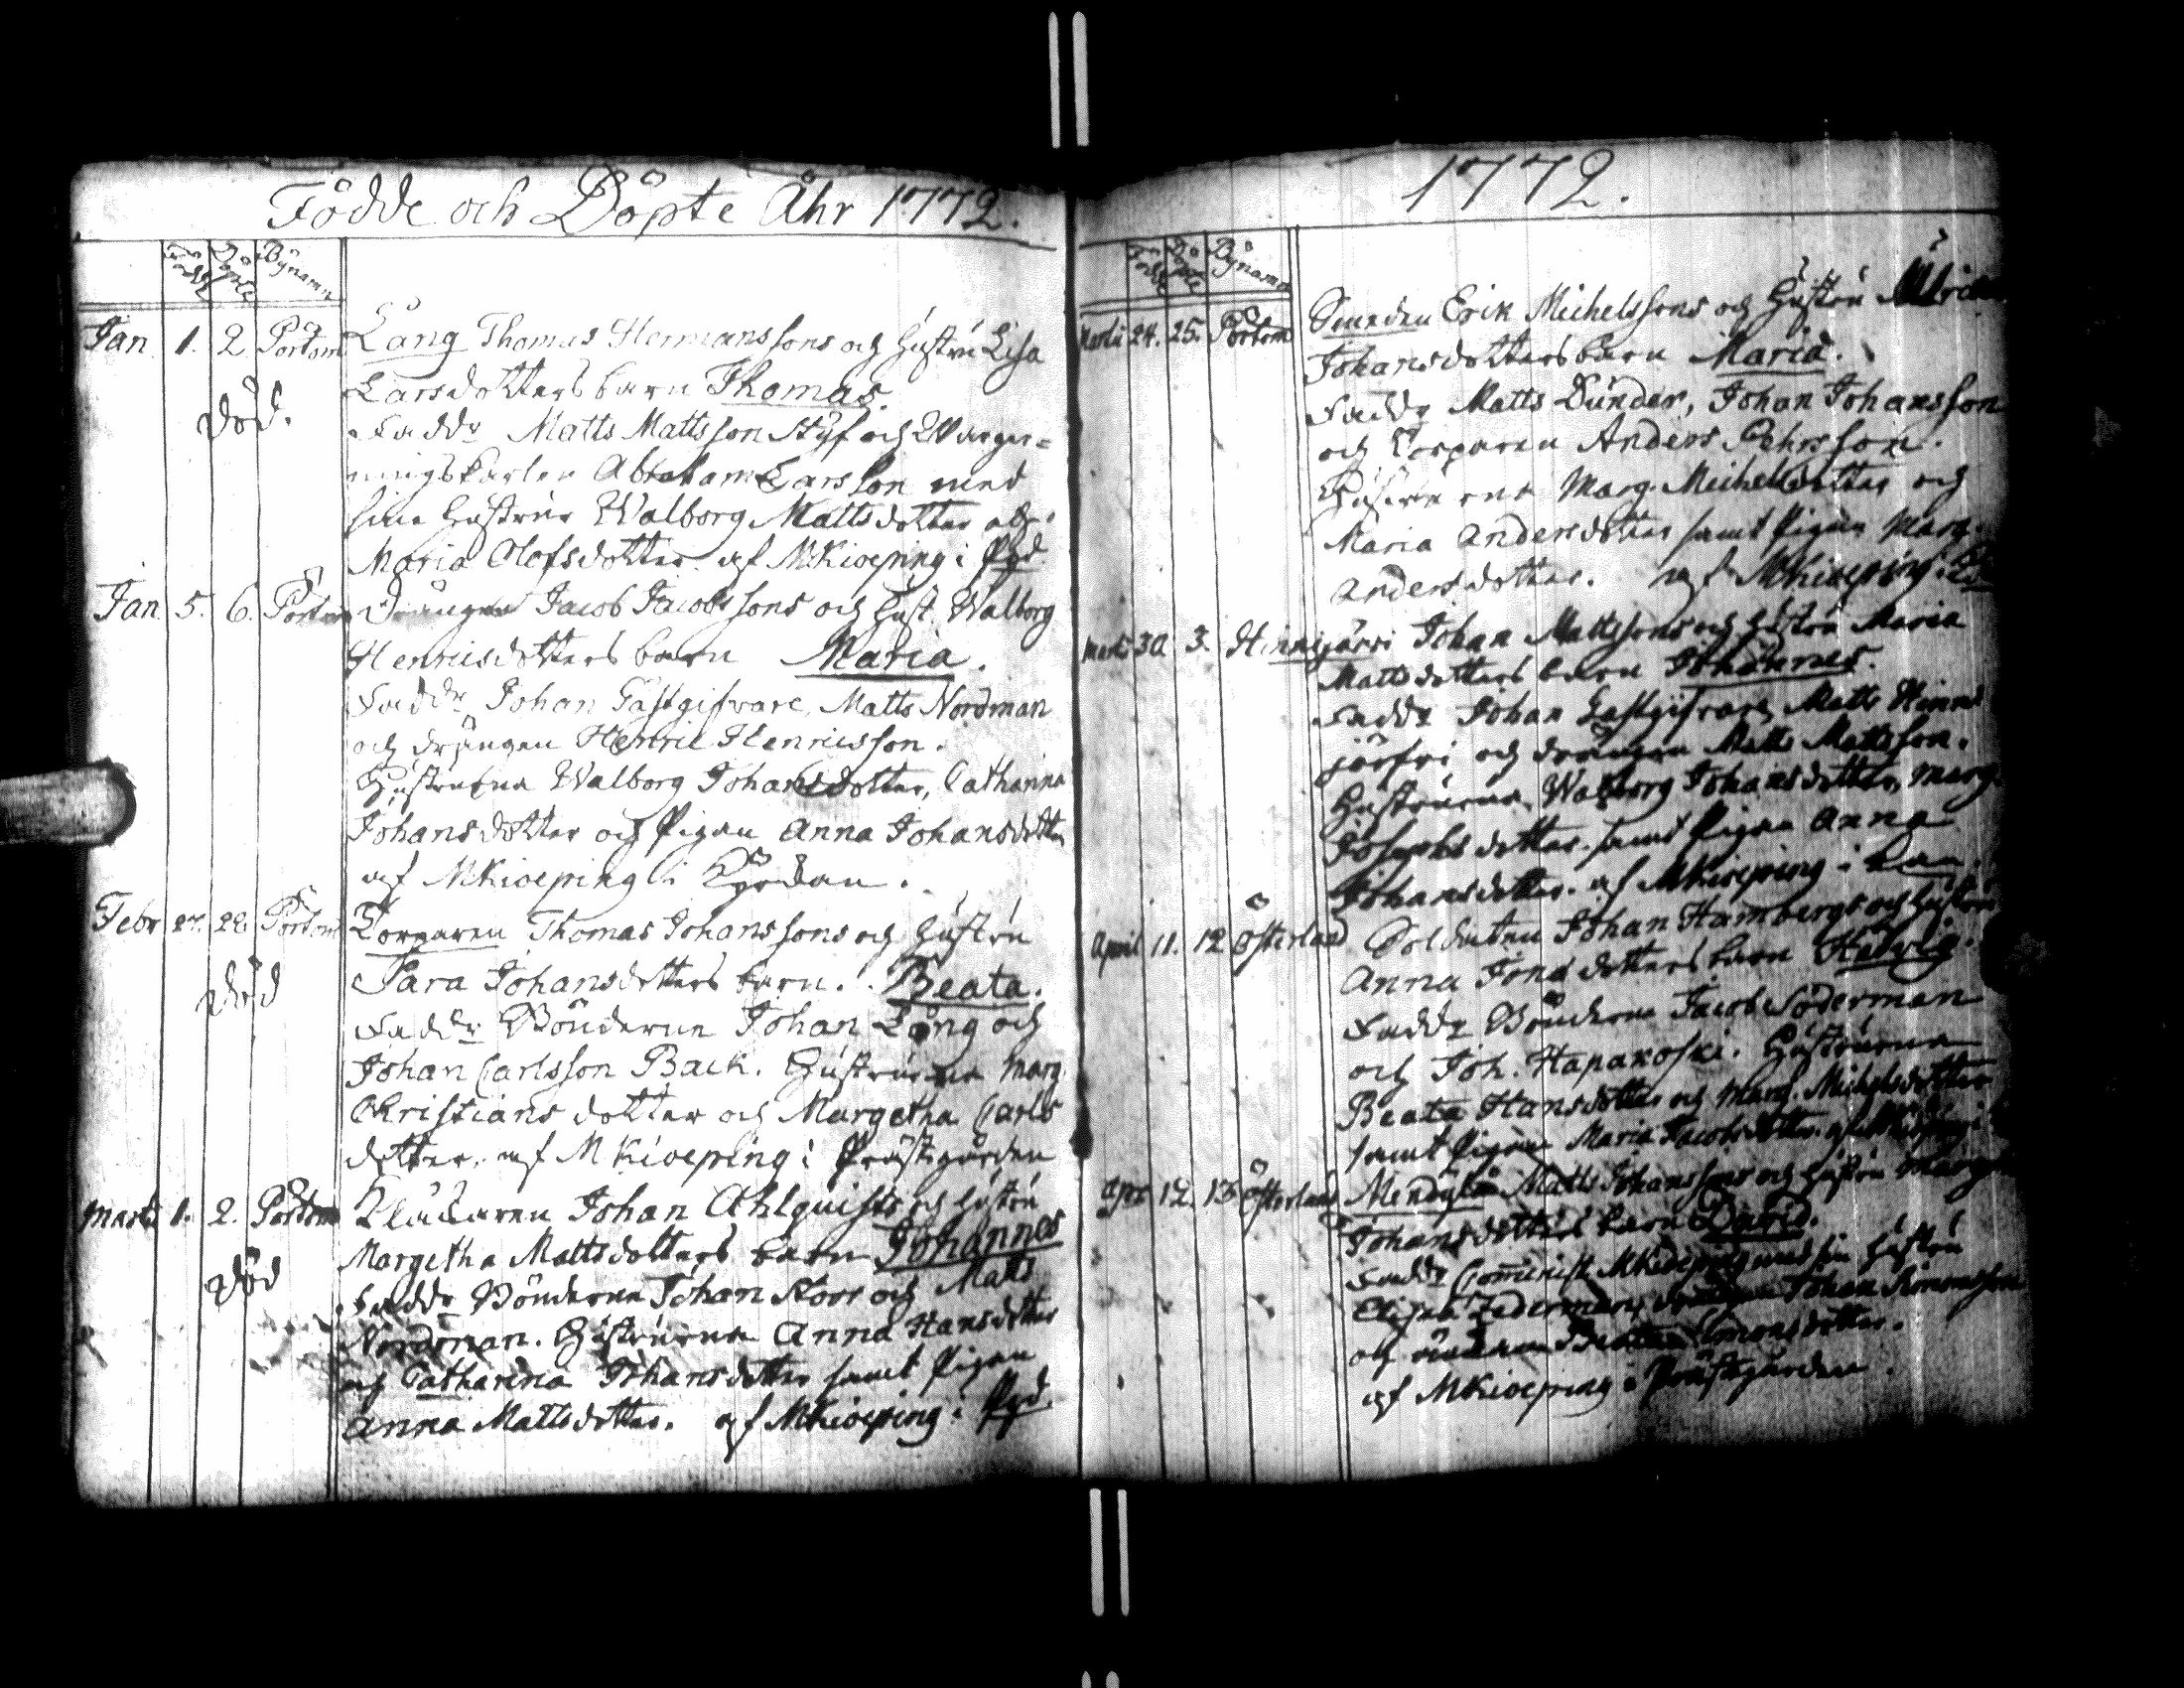 Födde och Döpte Åhr 1772.
Födde Döpte Bÿnamn
Jan. 1. 2. Pörtom Lång Thomas Hermanssons och hustru Lisa
Larsdotters barn Thomas.
död. Faddr Matts Mattsson Styf och Warge=
ringskarlen Abraham Larsson med
sina hustrur Walborg Mattsdotter och
Maria Olofsdotter. af MKioeping i Pgd.
Jan. 5. 6. Pörtom Drängen Jacob Jacobssons och hust. Walborg
Henricsdotters barn Maria.
Faddr Johan Gästgifvare, Matts Nordman
och drängen Henric Henricsson.
Hustrurna Walborg Johansdotter, Catharina
Johansdotter och Pigan Anna Johansdotter
af MKioeping i Kyrkan.
Febr 27. 28. Pörtom Torparen Thomas Johanssons och hustru
Sara Johansdotters barn. Beata.
död Faddr Bönderne Johan Lång och
Johan Carlsson Back. Hustrurna Marg.
Christiansdotter och Margetha Carls
dotter. af MKioeping i Prästgården
Martii 1. 2. Pörtom Klockaren Johan Ahlquists och hustru
Margetha Mattsdotters barn Johannes
död Faddr Bönderne Johan Storr och Matts
Nordman. Hustrurna Anna Hansdotter
och Catharina Johansdotter samt Pigan
Anna Mattsdotter. af MKioeping i Pgd.
1772.
Födde Döpte Bÿnamn
Martii 24. 25. Pörtom Smeden Erik Michelssons och hustru Ulrica
Johansdotters barn Maria.
Faddr Matts Dunder, Johan Johansson
och Torparen Anders Pehrsson.
Hustrurna Marg. Michelsdotter och
Maria Andersdotter samt Pigan Marg.
Andersdotter. af MKioeping i
Martii 30 3. Hinnijärvi Johan Mattssons och hustru Maria
Mattsdotters barn Johannes.
Faddr Johan Gästgifvare, Matts Hinni
järfvi och drängen Matts Mattsson.
Hustrurna Walborg Johansdotter, Marg.
Josephsdotter samt Pigan Anna
Johansdotter. af MKioeping i
April 11. 12 Österland Soldaten Johan Hambergs och hustru
Anna Jonsdotters barn Hedvig.
Faddr Bönderne Jacob Söderman
och Joh. Hapakoski. Hustrurna
Beata Hansdotter och Marg. Michelsdotter
samt Pigan Maria Jacobsdotter. af MKioeping i
Apr 12. 13 Österland Mendÿlä Matts Johanssons och hustru Marg.
Johansdotters barn David.
Faddr Comminist. MKioeping med sin hustru
Elisab. Zederman, drängen Johan Simonsson
och Simonsdotter.
af MKioeping i Prästgården.